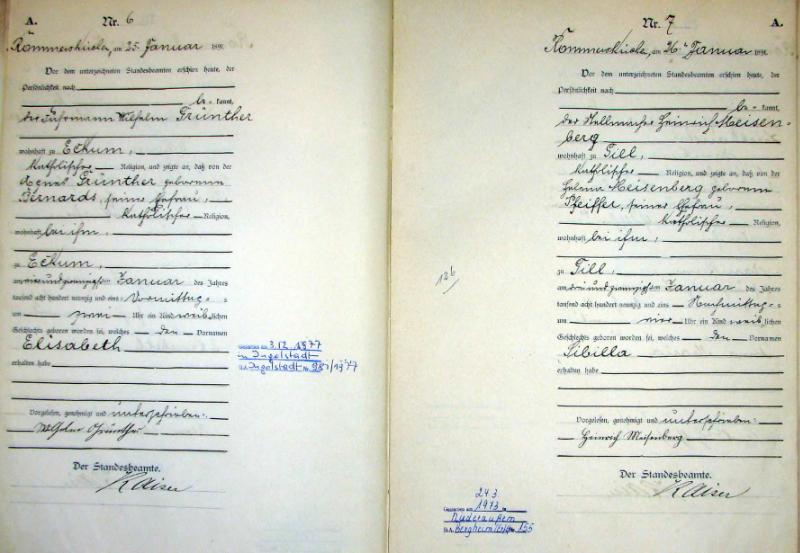 A. Nr. 6
Rommerskirchen, am 25. Januar 1891
Vor dem unterzeichneten Standesbeamten erschien heute, der
Persönlichkeit nach
be- kannt,
der Fuhrmann Wilhelm Grünther
wohnhaft zu Eckum,
katholischer Religion, und zeigte an, daß von der
Agnes Grünther geborenen
Bernards, seiner Ehefrau,
katholischer Religion,
wohnhaft bei ihm,
zu Eckum,
am Januar des Jahres
tausend acht hundert neunzig und eins Vormittags
um zwei Uhr ein Kind weiblichen
Geschlechts geboren worden sei, welches den Vornamen
Elisabeth
erhalten habe
Vorgelesen, genehmigt und unterschrieben:
Wilhelm Grünther
Der Standesbeamte.
Kaiser
Gestorben am 3.12.1977
in Ingolstadt
StA Ingolstadt Nr. /1977
Nr. 7 A.
Rommerskirchen, am 26. Januar 1891
Vor dem unterzeichneten Standesbeamten erschien heute, der
Persönlichkeit nach
be- kannt,
der Stellmacher Heinrich Meisen-
berg
wohnhaft zu Gill,
katholischer Religion, und zeigte an, daß von der
Helena Meisenberg geborenen
Pfeiffer, seiner Ehefrau,
katholischer Religion,
wohnhaft bei ihm,
zu Gill,
am Januar des Jahres
tausend acht hundert neunzig und eins Nachmittags
um vier Uhr ein Kind weiblichen
Geschlechts geboren worden sei, welches den Vornamen
Sibilla
erhalten habe
Vorgelesen, genehmigt und unterschrieben:
Heinrich Meisenberg
Der Standesbeamte.
Kaiser
126
24 3
Gestorben am 1973 in
Niederaußem
StA. Bergheim Nr. 155